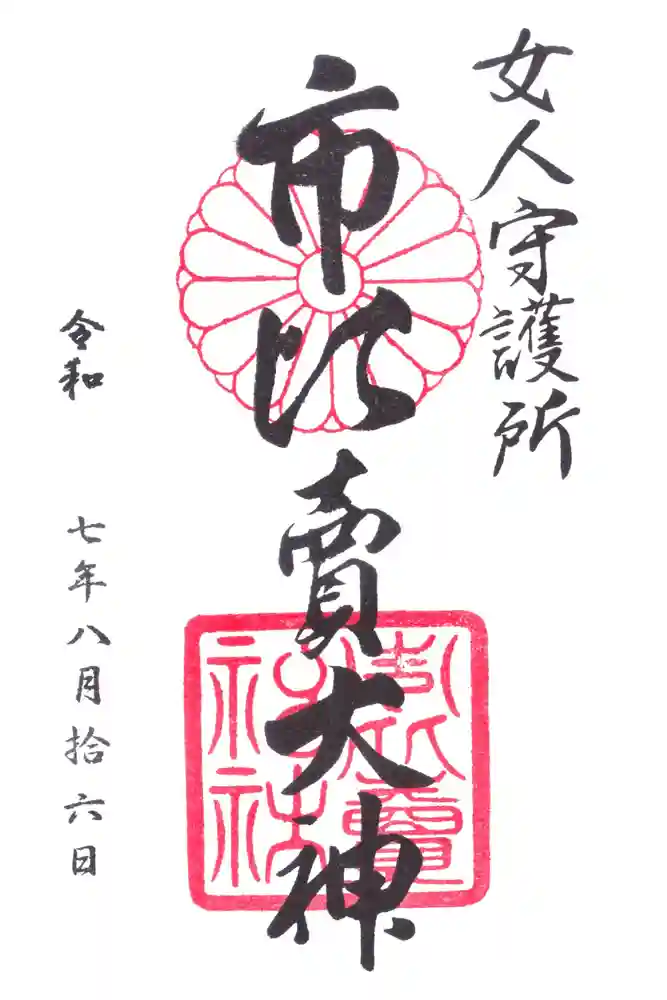 女人守護所
市比賣大神
市比賣神社
令和 七年八月拾六日